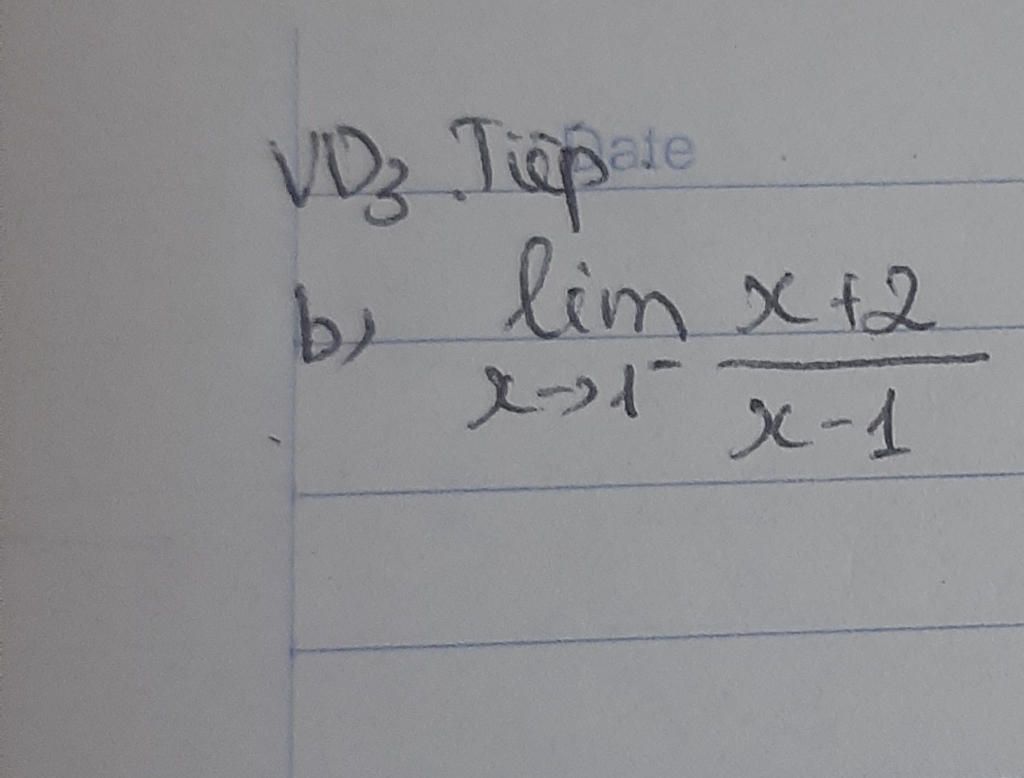 VD3. Tiếp Date
b) lim x+2
x→1⁻ x-1